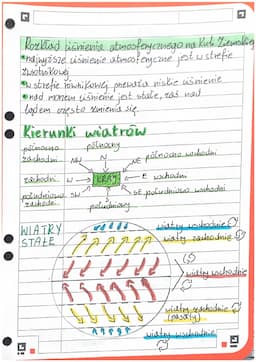 Rozkład ciśnienia atmosferycznego na Kuli Ziemskiej
• najwyższe ciśnienie atmosferyczne jest w strefie
zwrotnikowej
• w strefie równikowej przeważa niskie ciśnienie
• nad morzem ciśnienie jest stałe, zaś nad
lądem często zmienia się.
Kierunki wiatrów
północno zachodni
północny
NW N NE północno wschodni
zachodni W KRAJ E wschodni
południowo zachodni SW S SE południowo wschodni
południowy
WIATRY
STAŁE
wiatry wschodnie
wiatry zachodnie
wiatry wschodnie
wiatry zachodnie
(pasaty)
wiatry wschodnie